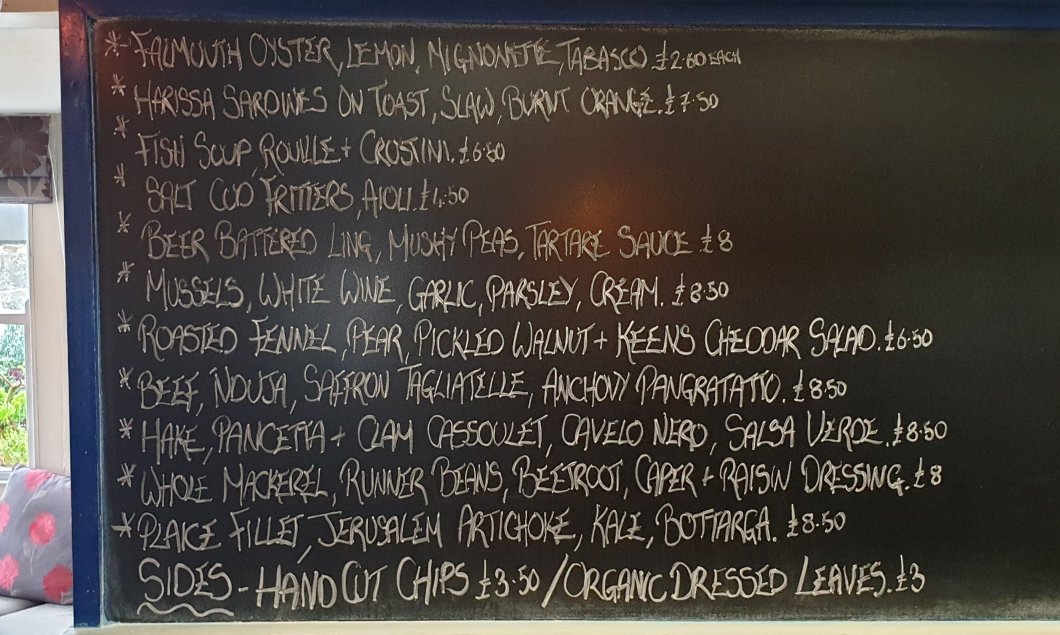 *- FALMOUTH OYSTER, LEMON, MIGNONETTE, TABASCO £2.60 EACH
* HARISSA SARDINES ON TOAST, SLAW, BURNT ORANGE. £7.50
* FISH SOUP, ROUILLE + CROSTINI. £6.50
* SALT COD FRITTERS, AIOLI. £4.50
* BEER BATTERED LING, MUSHY PEAS, TARTARE SAUCE £8
* MUSSELS, WHITE WINE, GARLIC, PARSLEY, CREAM. £8.50
* ROASTED FENNEL, PEAR, PICKLED WALNUT + KEENS CHEDDAR SALAD. £6.50
* BEEF, 'NDUJA, SAFFRON TAGLIATELLE, ANCHOVY PANGRATATTO. £8.50
* HAKE, PANCETTA + CLAM CASSOULET, CAVELO NERO, SALSA VERDE. £8.50
* WHOLE MACKEREL, RUNNER BEANS, BEETROOT, CAPER + RAISIN DRESSING. £8
* PLAICE FILLET, JERUSALEM ARTICHOKE, KALE, BOTTARGA. £8.50
SIDES - HAND CUT CHIPS £3.50 / ORGANIC DRESSED LEAVES. £3